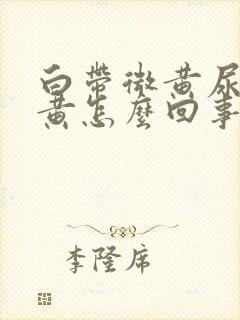 白帶微黃尿
黃怎麼回事
李隆席